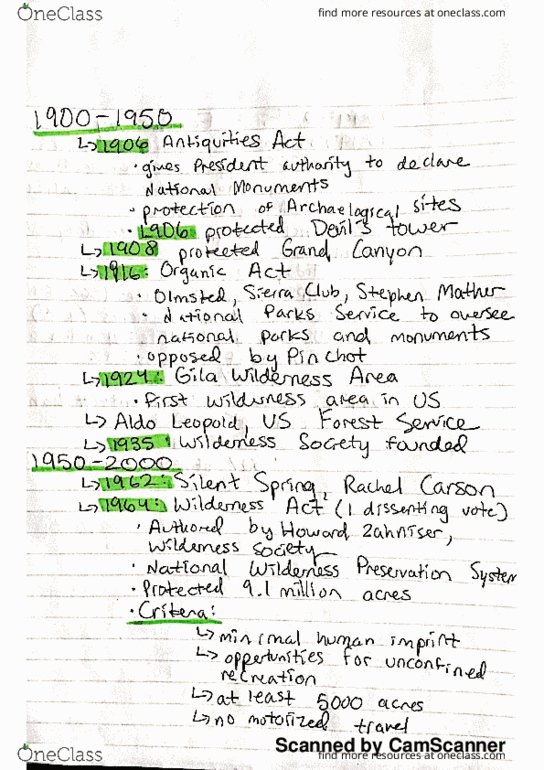 OneClass
find more resources at oneclass.com
1900-1950
↳1906 Antiquities Act
· gives President authority to declare
National Monuments
· protection of Archaelogical sites
· 1906 protected Devil's tower
↳ 1908 protected Grand Canyon
↳1916: Organic Act
· Olmsted, Sierra Club, Stephen Mather
· National Parks Service to oversee
national parks and monuments
· opposed by Pinchot
↳1924: Gila Wilderness Area
· First wilderness area in US
↳ Aldo Leopold, US Forest Service
↳ 1935: Wilderness Society founded
1950-2000
↳1962: Silent Spring, Rachel Carson
↳1964: Wilderness Act (1 dissenting vote)
· Authored by Howard Zahniser,
Wilderness Society
· National Wilderness Preservation System
· Protected 9.1 million acres
· Critera:
↳ minimal human imprint
↳ oppertunities for unconfined
recreation
↳ at least 5000 acres
↳ no motorized travel
Scanned by CamScanner
OneClass
find more resources at oneclass.com